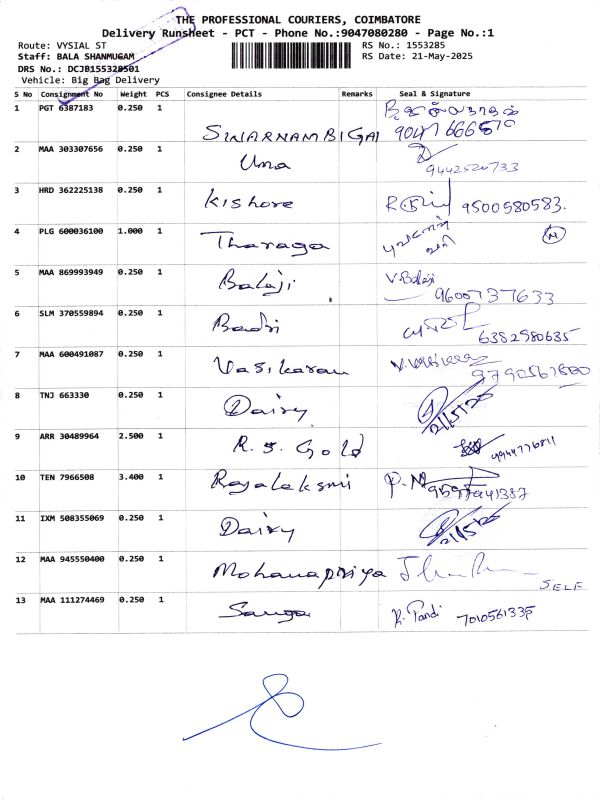 THE PROFESSIONAL COURIERS, COIMBATORE
Delivery Runsheet - PCT - Phone No.:9047080280 - Page No.:1
Route: VYSIAL ST RS No.: 1553285
Staff: BALA SHANMUGAM RS Date: 21-May-2025
DRS No.: DCJB155328501
Vehicle: Big Bag Delivery
S No Consignment No Weight PCS Consignee Details Remarks Seal & Signature
1 PGT 6387183 0.250 1
SWARNAMBIGAI
2 MAA 303307656 0.250 1 Uma
9442520733
3 HRD 362225138 0.250 1 Kishore 9500580583.
4 PLG 600036100 1.000 1 Tharaga
5 MAA 869993949 0.250 1 Balaji V. Balaji
9600737633
6 SLM 370559894 0.250 1 Badri
6382980635
7 MAA 600491087 0.250 1 Vasikaran
8 TNJ 663330 0.250 1 Dairy 21/5/25
9 ARR 30489964 2.500 1 R.S. Gold 9944776811
10 TEN 7966508 3.400 1 Rajalaksmi
11 IXM 508355069 0.250 1 Dairy 21/5/25
12 MAA 945550400 0.250 1 Mohanapriya
SELF
13 MAA 111274469 0.250 1 Sanga R. Pandi 7010561335